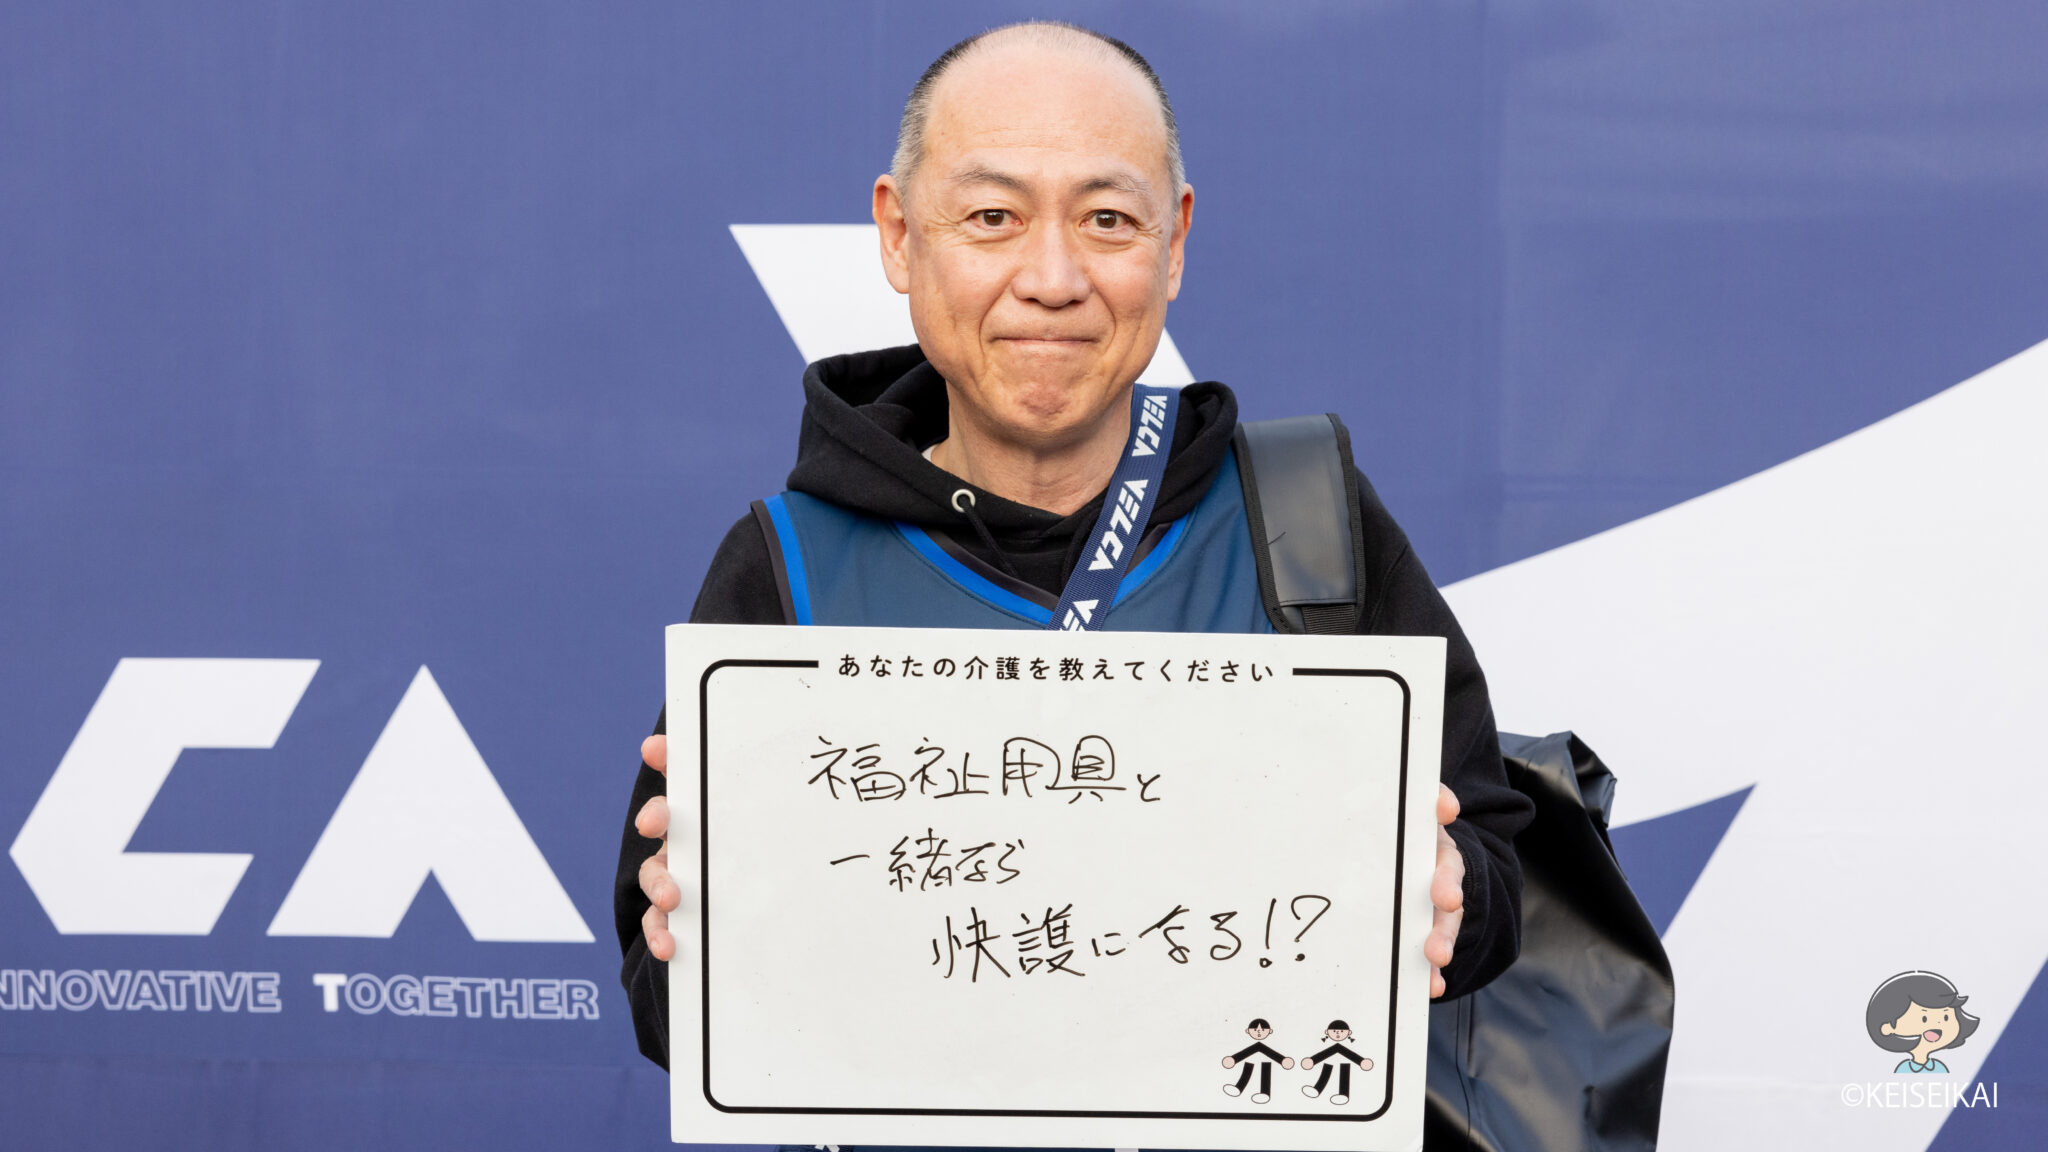 VELCA
VELCA
VE
あなたの介護を教えてください
福祉用具と
一緒なら
快護になる!?
CA
NNOVATIVE TOGETHER
©KEISEIKAI